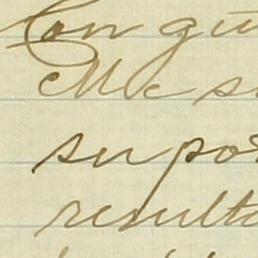 Con gu
Me s
su pos
resulta